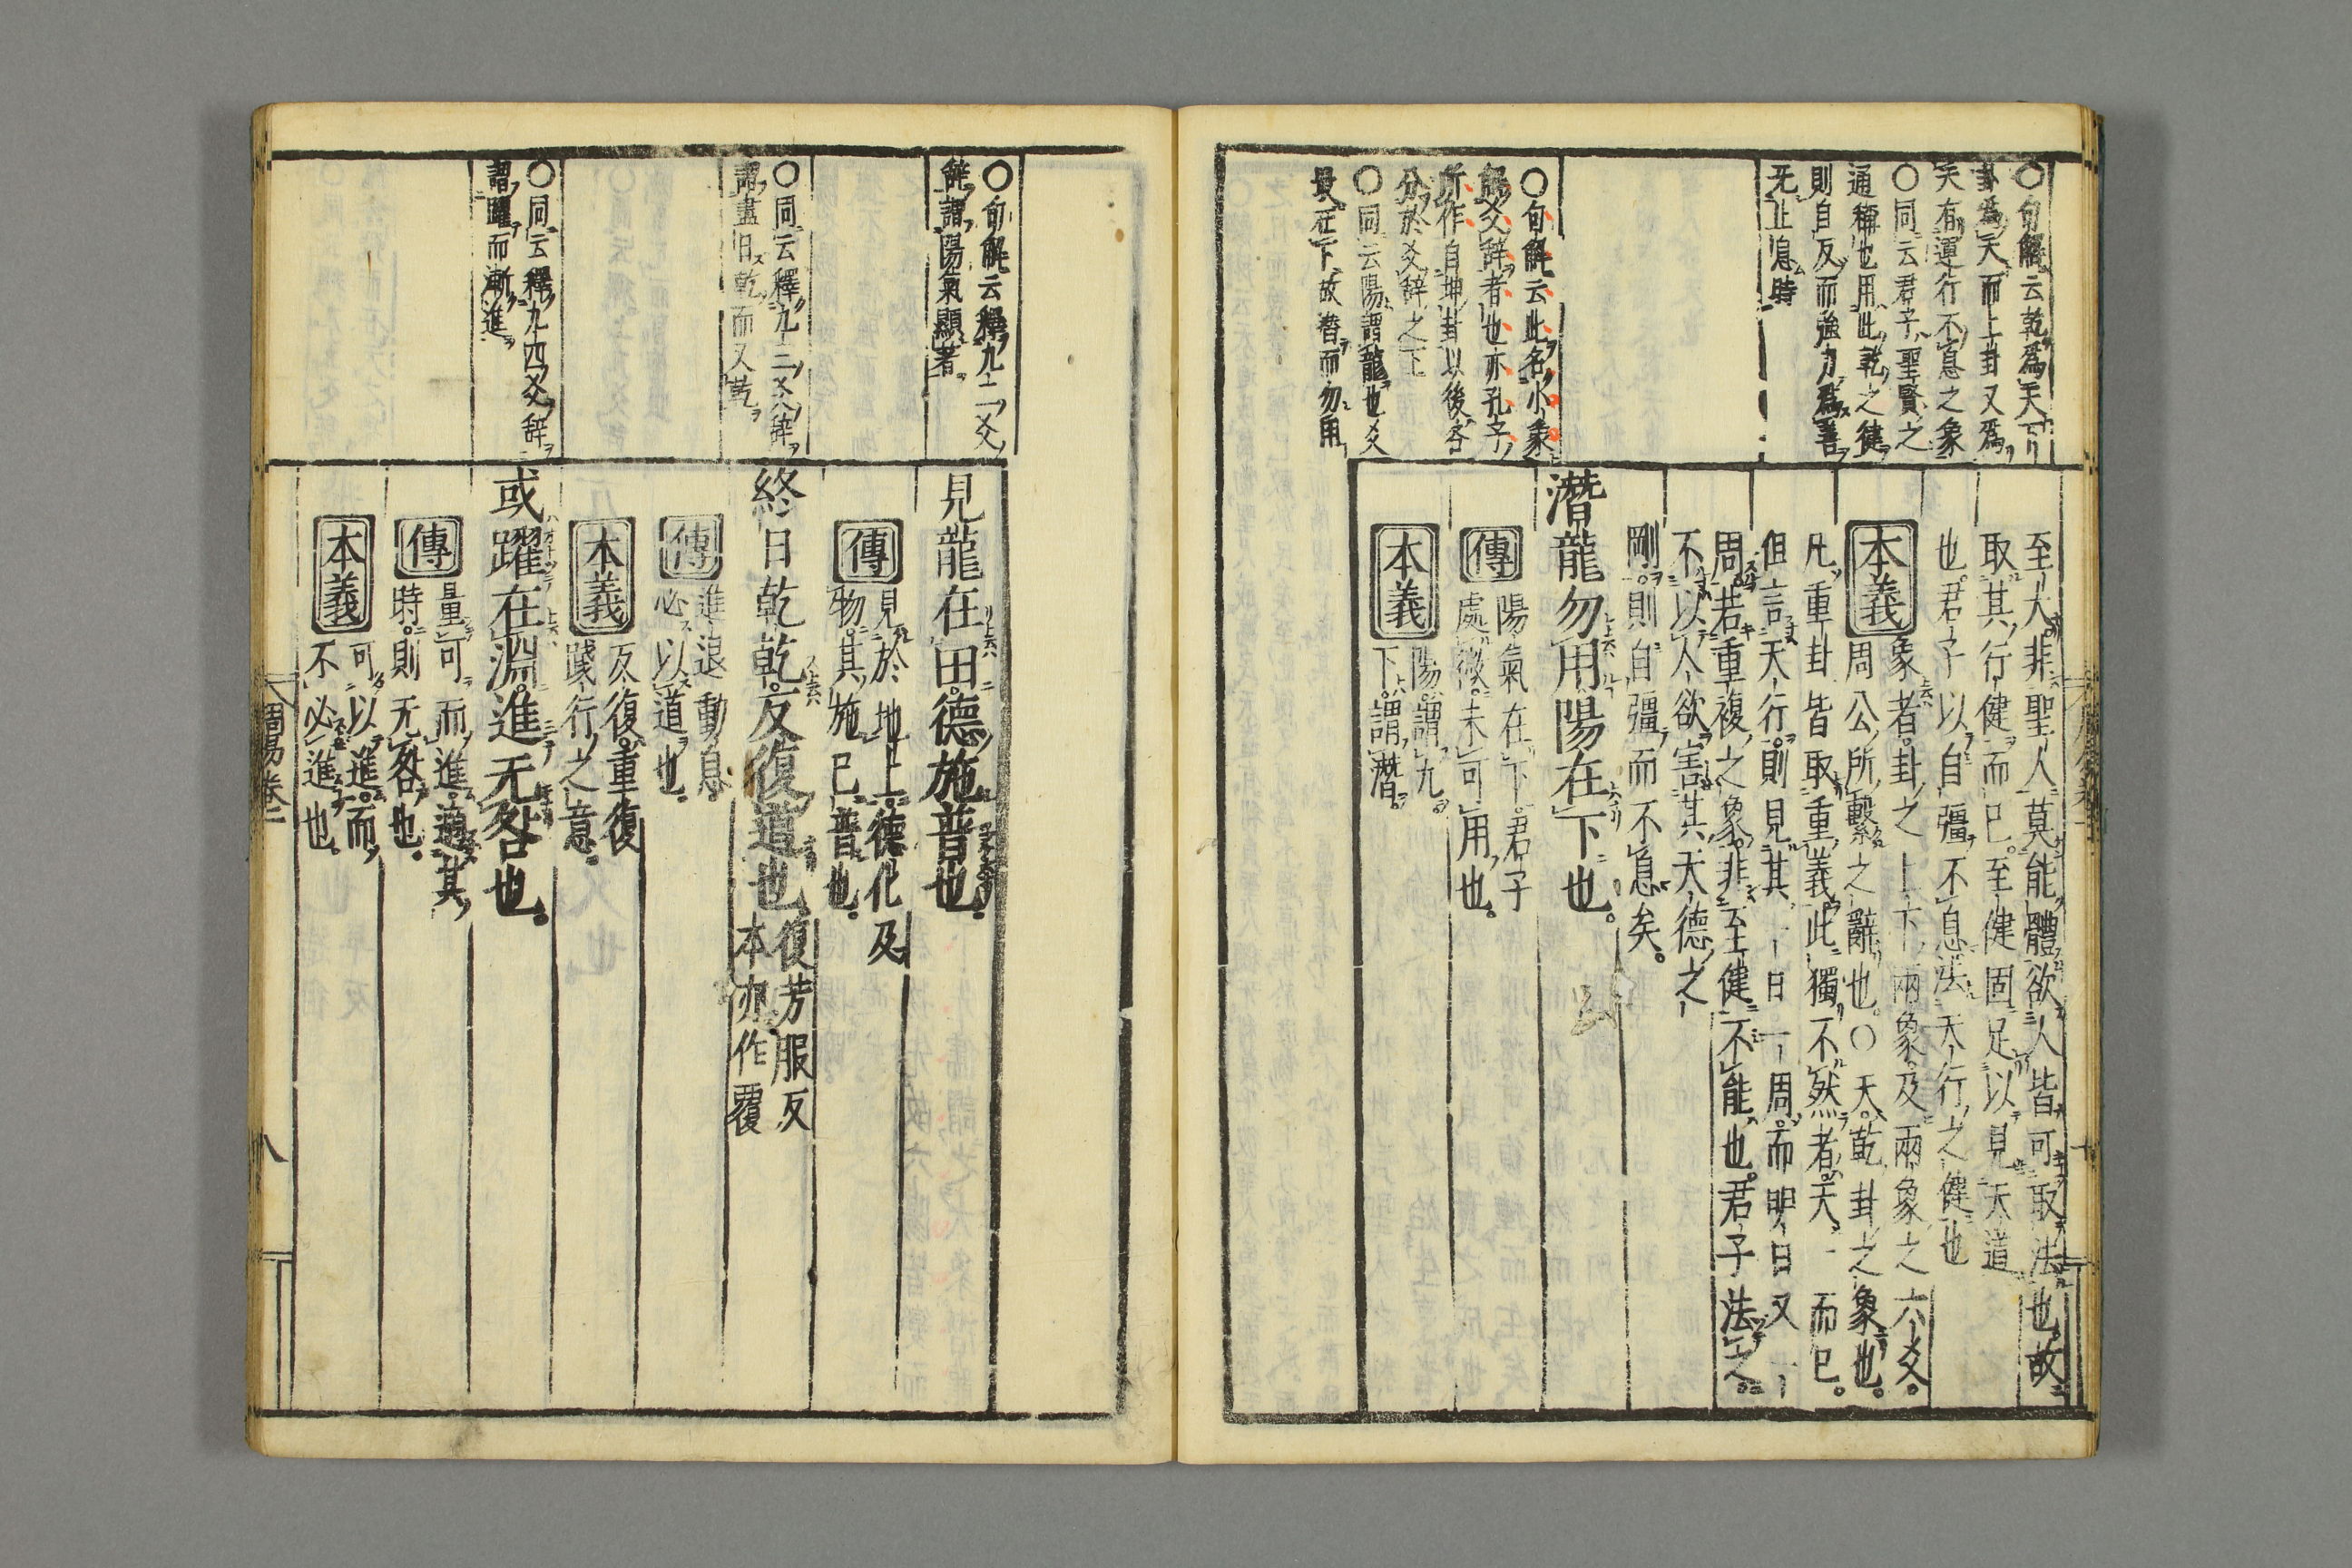 〇句解云乾爲天下
卦爲天而上卦又爲
天有運行不息之象
〇同云君子聖賢之
通稱也用此乾之健
則自反而強力爲善
无止息時
〇句解云此名小象
解爻辞者也亦孔子
所作自坤卦以後各
分於爻辞之下
〇同云陽謂龍也爻
最在下故潛而勿用
至大非聖人莫能體欲人皆可取法也故
取其行健而已至健固足以見天道
也君子以自彊不息法天行之健也
本義
象者卦之上下兩象及兩象之六爻
周公所繫之辭也〇天乾卦之象也
凡重卦皆取重義此獨不然者天一而已
但言天行則見其一日一周而明日又一
周若重複之象非至健不能也君子法之
不以人欲害其天德之
剛則自彊而不息矣
潛龍勿用陽在下也
傳
陽氣在下君子
處微未可用也
本義
陽謂九
下謂潛
周易卷一
〇句解云釋九二爻
辞謂陽氣顯著
〇同云釋九三爻辞
謂盡日乾而又乾
〇同云釋九四爻辞
謂躍而漸進
見龍在田德施普也
傳
見於地上德化及
物其施已普也
終日乾乾反復道也
復芳服反
本亦作覆
傳
進退動息
必以道也
本義
反復重復
踐行之意
或躍在淵進无咎也
傳
量可而進適其
時則无咎也
本義
可以進而
不必進也
周易卷一
八